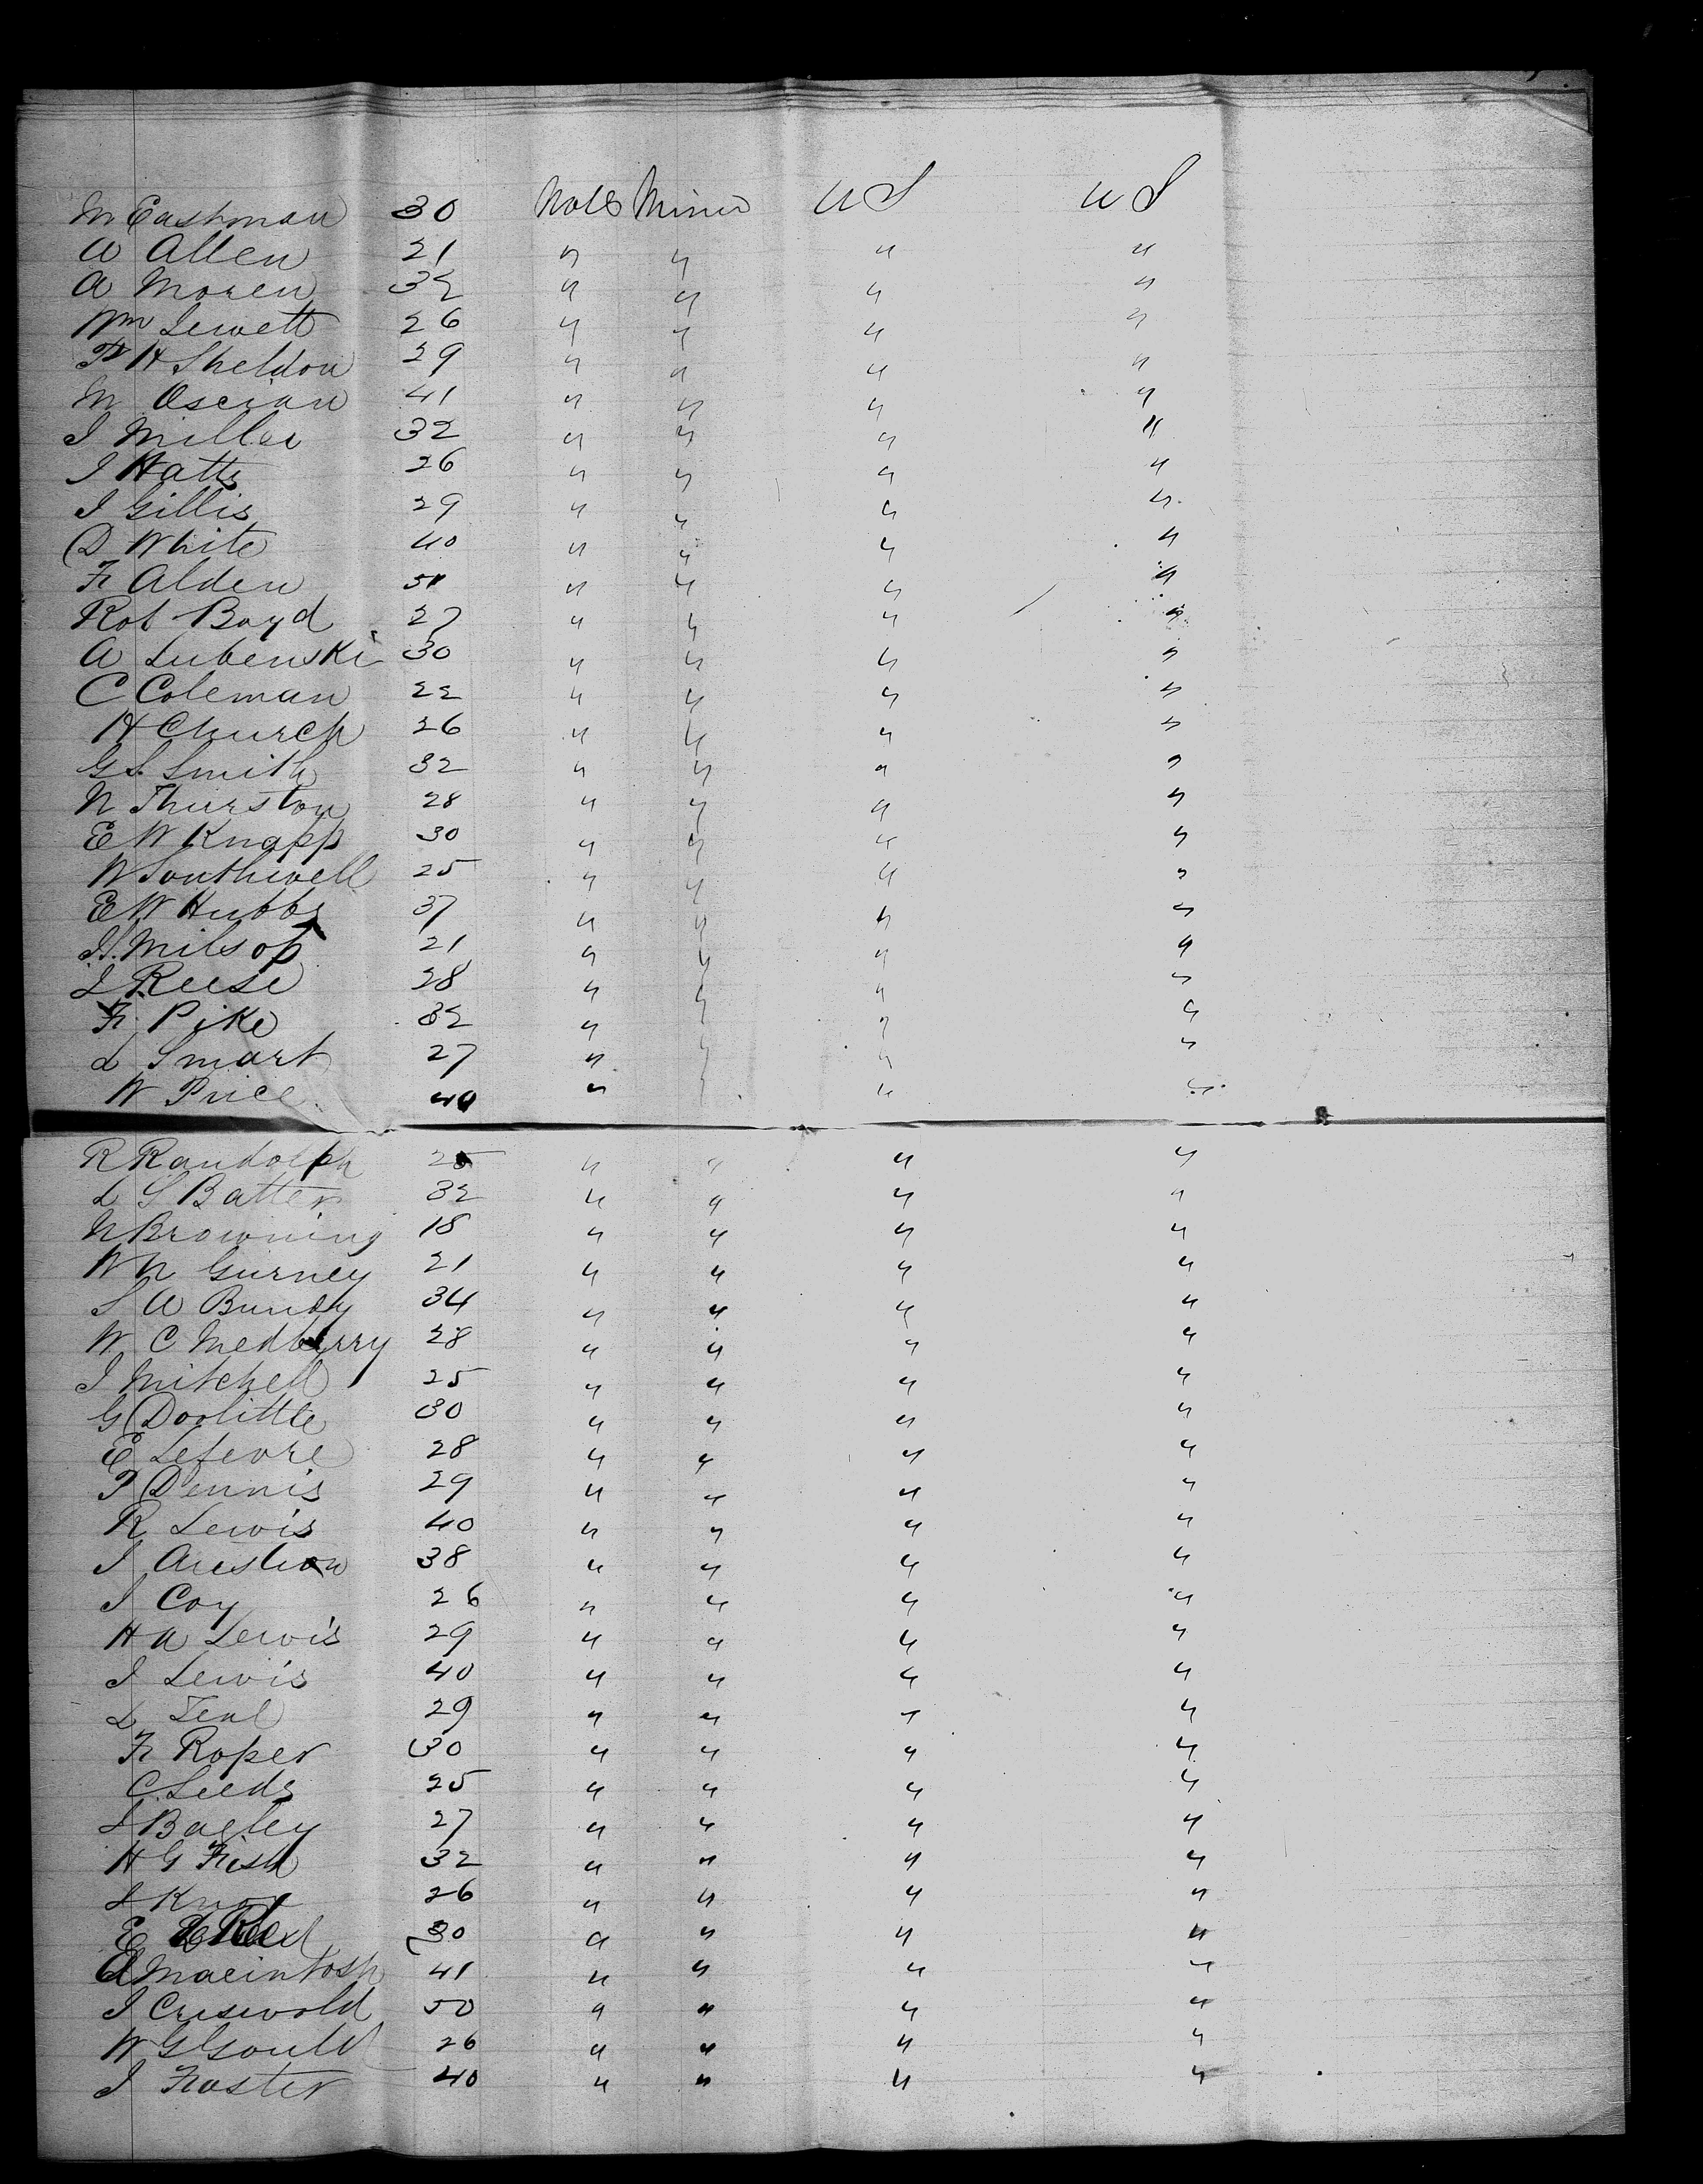 M Eastman 30 Male Miner U S U S
A Allen 21 " " " "
A Moren 32 " " " "
Wm Jewett 26 " " " "
P H Sheldon 29 " " " "
M 41 " " " "
J Miller 32 " " " "
J Hatts 26 " " " "
J Gillis 29 " " " "
D White 40 " " " "
Fr Alden 51 " " " "
Rob Boyd 27 " " " "
A Lubenski 30 " " " "
C Coleman 22 " " " "
H Church 26 " " " "
G S Smith 32 " " " "
N Thurston 28 " " " "
E W Knapp 30 " " " "
W Southwell 25 " " " "
E W Hubbs 37 " " " "
J. Milsop 21 " " " "
L Reese 28 " " " "
Fr Pike 32 " " " "
L Smart 27 " " " "
W Price 40 " " " "
R Randolph 25 " " " "
L S Batter 32 " " " "
N Browning 18 " " " "
W N Gurney 21 " " " "
S A Bundy 34 " " " "
W C Medberry 28 " " " "
J Mitchell 25 " " " "
G Doolittle 30 " " " "
E Lefevre 28 " " " "
P Dennis 29 " " " "
R Lewis 40 " " " "
J 38 " " " "
J Coy 26 " " " "
H A Lewis 29 " " " "
J Lewis 40 " " " "
L Teal 29 " " " "
Fr Roper 30 " " " "
C Leeds 25 " " " "
S Bagley 27 " " " "
H G Fish 32 " " " "
L Knox 26 " " " "
E Reed 30 " " " "
A Macintosh 41 " " " "
J Criswold 50 " " " "
W G Gould 26 " " " "
J Froster 40 " " " "